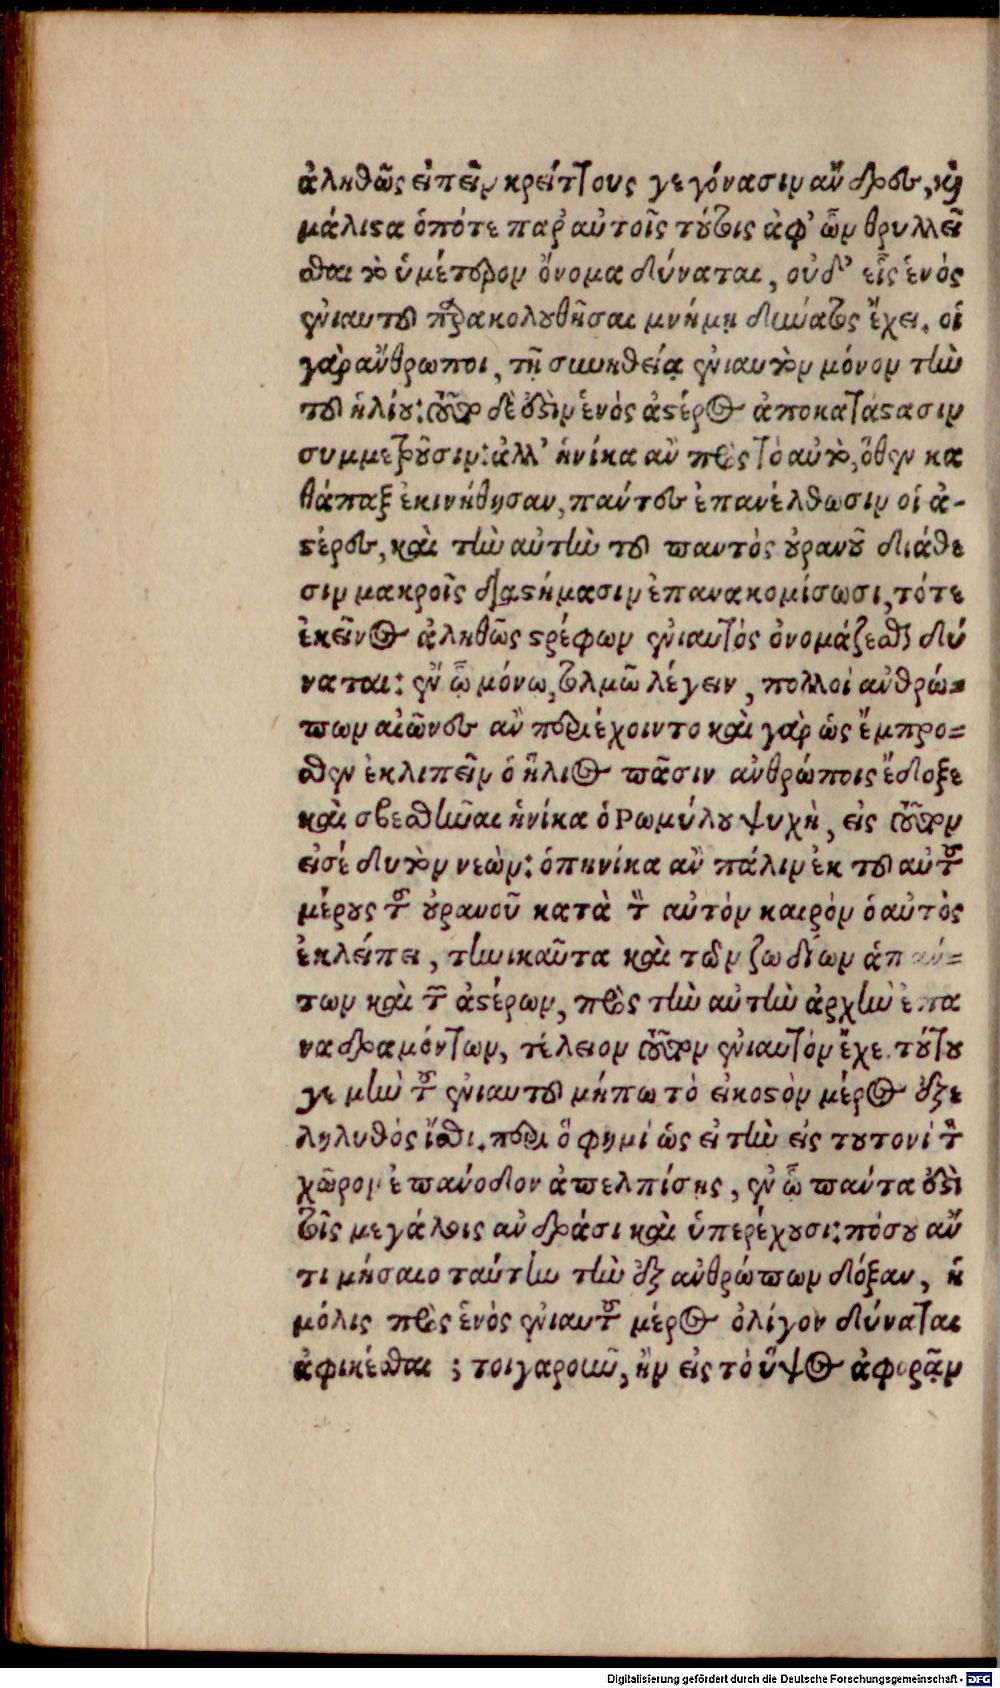 ἀληθῶς εἰπεῖν κρείττους γεγόνασιν ἄνδρες, καὶ
μάλιστα ὁπότε παρ' αὐτοῖς τούτοις ἀφ' ὧν θρυλλεῖ
σθαι τὸ ὑμέτερον ὄνομα δύναται, οὐδ' εἷς ἑνὸς
ἐνιαυτοῦ παρακολουθῆσαι μνήμῃ δυνάτως ἔχει. οἱ
γὰρ ἄνθρωποι, τῇ συνηθείᾳ ἐνιαυτὸν μόνον τὴν
τοῦ ἡλίου: τοῦτο δὲ οὐδὲν ἑνὸς ἀστέρος ἀποκατάστασιν
συμμετροῦσιν: ἀλλ' ἡνίκα ἂν πρὸς τὸ αὐτὸ, ὅθεν κα
θάπαξ ἐκινήθησαν, πάντες ἐπανέλθωσιν οἱ ἀ-
στέρες, καὶ τὴν αὐτὴν τοῦ παντὸς οὐρανοῦ διάθε
σιν μακροῖς διαστήμασιν ἐπανακομίσωσι, τότε
ἐκεῖνος ἀληθῶς στρέφων ἐνιαυτὸς ὀνομάζεσθαι δύ
ναται: ἐν ᾧ μόνῳ, τολμῶ λέγειν, πολλοὶ ἀνθρώ=
πων αἰῶνες ἂν περιέχοιντο καὶ γὰρ ὡς ἔμπρο=
σθεν ἐκλιπεῖν ὁ ἥλιος πᾶσιν ἀνθρώποις ἔδοξε
καὶ σβεσθῆναι ἡνίκα ὁ Ρωμύλου ψυχὴ, εἰς τοῦτον
εἰσέδυ τὸν νεὼν: ὁπηνίκα ἂν πάλιν ἐκ τοῦ αὐτοῦ
μέρους τοῦ οὐρανοῦ κατὰ τὸν αὐτὸν καιρὸν ὁ αὐτὸς
ἐκλείπει, τηνικαῦτα καὶ τῶν ζωδίων ἁπάν=
των καὶ τῶν ἀστέρων, πρὸς τὴν αὐτὴν ἀρχὴν ἐπα
ναδραμόντων, τέλειον τοῦτον ἐνιαυτὸν ἔχε. τούτου
γε μὴν τοῦ ἐνιαυτοῦ μήπω τὸ εἰκοστὸν μέρος ἐξε
ληλυθός ἴσθι. περὶ ὅ φημί ὡς εἰ τὴν εἰς τουτονὶ τὸν
χῶρον ἐπάνοδον ἀπελπίσῃς, ἐν ᾧ πάντα ἐστὶ
τοῖς μεγάλοις ἀνδράσι καὶ ὑπερέχουσι: πόσου ἂν
τιμήσαιο ταύτην τὴν ἐξ ἀνθρώπων δόξαν, ἡ
μόλις πρὸς ἑνὸς ἐνιαυτοῦ μέρος ὀλίγον δύναται
ἀφικέσθαι ; τοιγαροῦν, ἢν εἰς τὸ ὕψος ἀφορᾷν
Digitalisierung gefördert durch die Deutsche Forschungsgemeinschaft - DFG